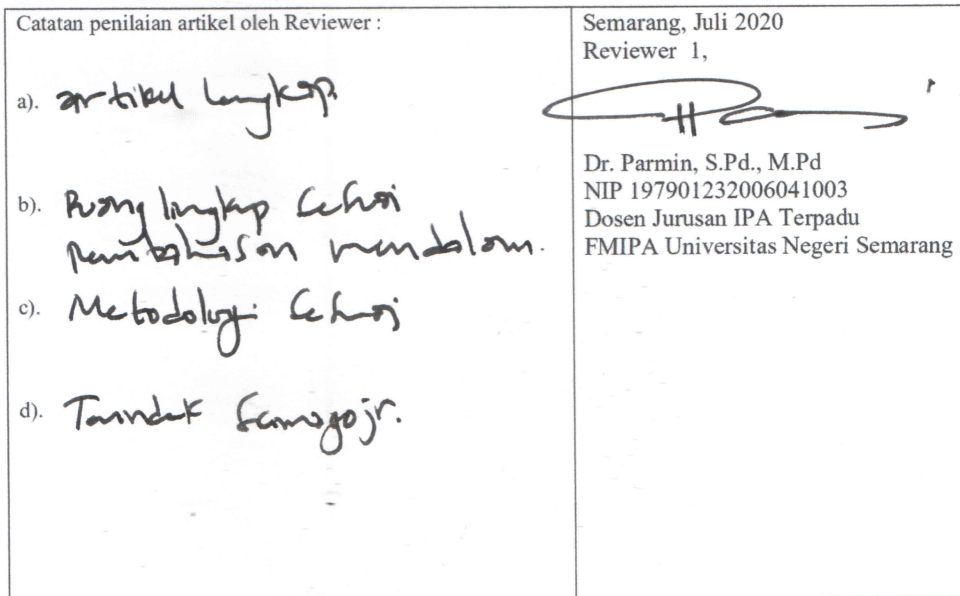 Catatan penilaian artikel oleh Reviewer :
a). artikel lengkap.
b). Ruang lingkup sesuai
pembahasan mendalam.
c). Metodologi sesuai
d). Terindek
Semarang, Juli 2020
Reviewer 1,
Dr. Parmin, S.Pd., M.Pd
NIP 197901232006041003
Dosen Jurusan IPA Terpadu
FMIPA Universitas Negeri Semarang